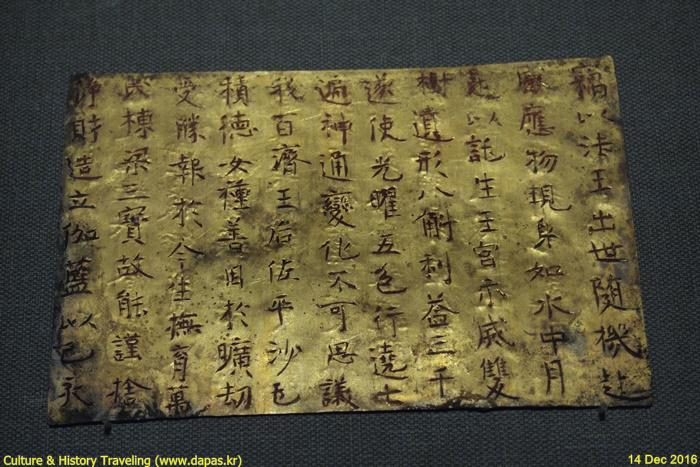 竊以法王出世隨機赴
感應物現身如水中月
是以託生王宮示滅雙
樹遺形八斛利益三千
遂使光曜五色行遶七
遍神通變化不可思議
我百濟王后佐平沙乇
積德女種善因於曠劫
受勝報於今生撫育萬
民棟梁三寶故能謹捨
淨財造立伽藍以己亥
Culture & History Traveling (www.dapas.kr)
14 Dec 2016